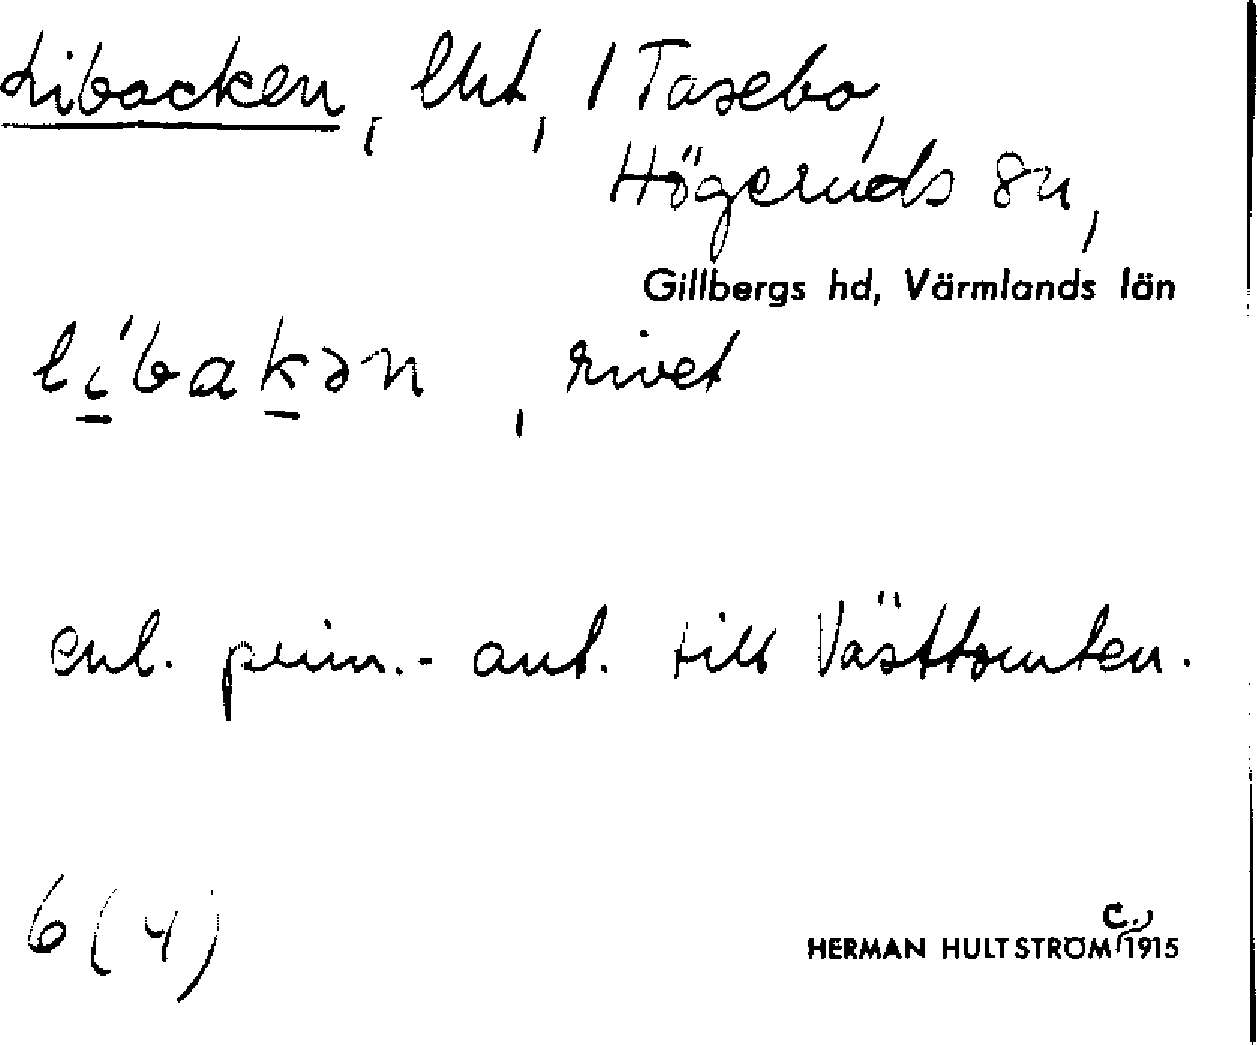 Libacken, lht, 1 Tasebo,
Högeruds sn,
Gillbergs hd, Värmlands län
líbakən, rivet
enl. prim.-ant. till Västtomten.
6 (4)
C.
HERMAN HULTSTRÖM 1915